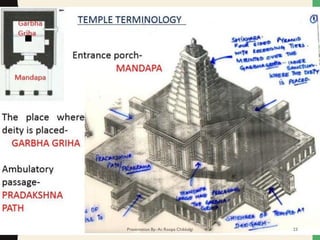 TEMPLE TERMINOLOGY
Garbha
Griha
Mandapa
Entrance porch-
MANDAPA
The place where
deity is placed-
GARBHA GRIHA
Ambulatory
passage-
PRADAKSHNA
PATH
SHIKHARA -
FOUR SIDED PYRAMID
WITH RECEDING TIERS.
MOUNTED OVER THE
GARBHAGRIHA - INNER
SANCTUM
WHERE THE DEITY
IS PLACED.
PRADAKSHINA
PATH
MANDAPA
SHIKHARA OF TEMPLE AT
DEOGARH.
Presentation By- Ar. Roopa Chikkalgi
13